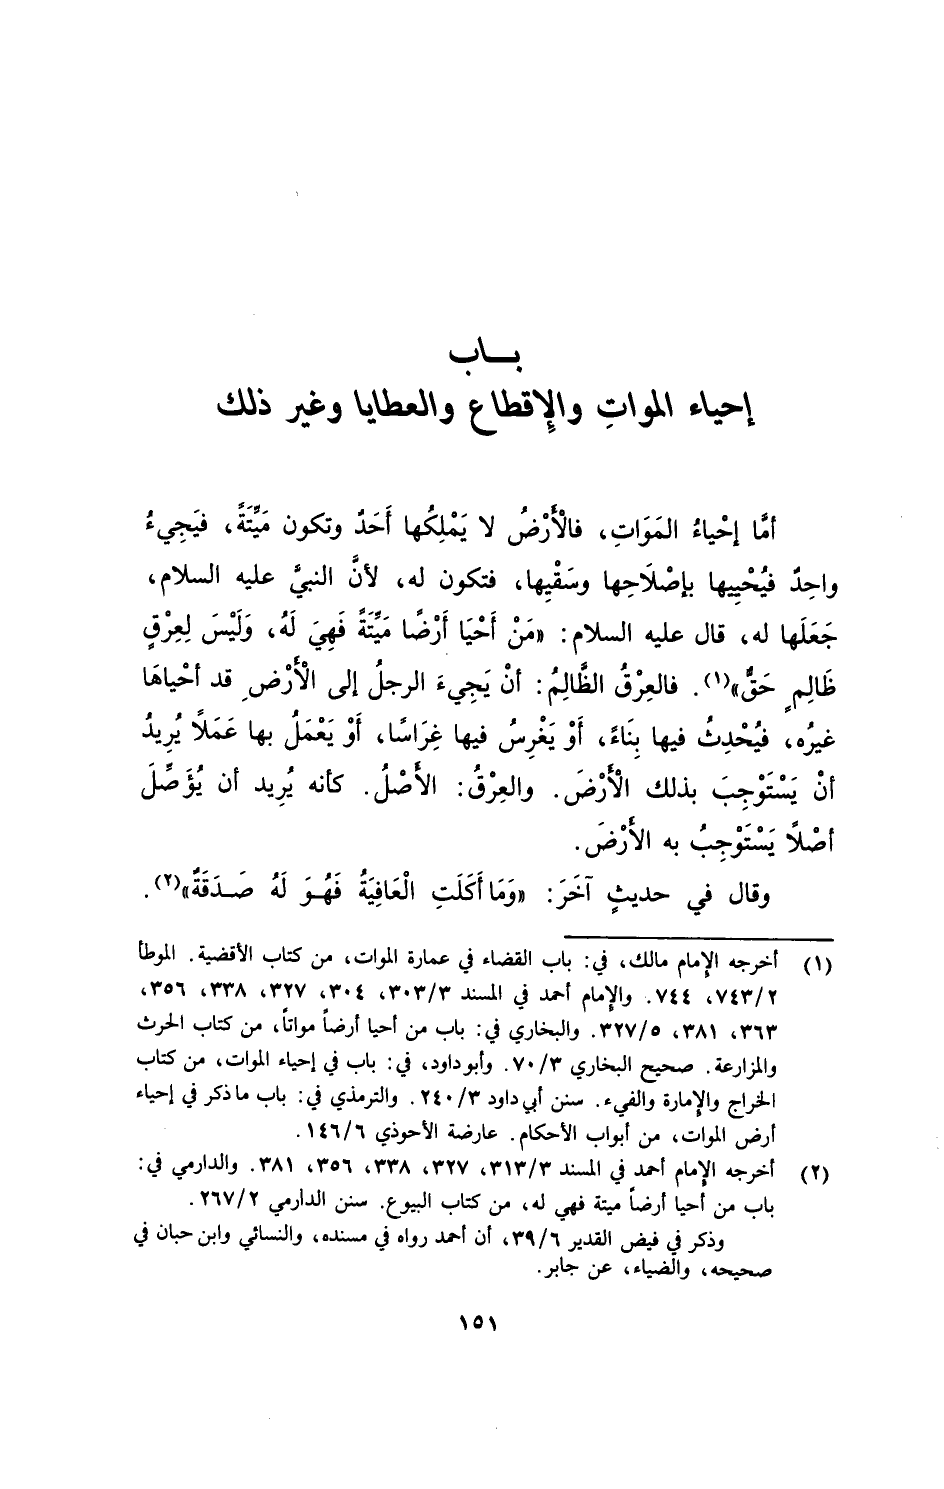 بـــاب
إحياء المواتِ والإِقطاع والعطايا وغير ذلك
أمَّا إحْياءُ المَوَاتِ، فالْأَرْضُ لا يَمْلِكُها أَحَدٌ وتكون مَيِّتَةً، فيَجِيءُ
واحِدٌ فيُحْيِيها بإصْلَاحِها وسَقْيِها، فتكون له، لأنَّ النبيَّ عليه السلام،
جَعَلَها له، قال عليه السلام: «مَنْ أَحْيَا أَرْضًا مَيِّتَةً فَهِيَ لَهُ، وَلَيْسَ لِعِرْقٍ
ظَالِمٍ حَقٌّ»(١). فالعِرْقُ الظَّالِمُ: أنْ يَجِيءَ الرجلُ إلى الْأَرْضِ قد أحْياهَا
غيرُه، فيُحْدِثُ فيها بِنَاءً، أَوْ يَغْرِسُ فيها غِرَاسًا، أَوْ يَعْمَلُ بها عَمَلاً يُرِيدُ
أنْ يَسْتَوْجِبَ بذلك الْأَرْضَ. والعِرْقُ: الأَصْلُ. كأنه يُرِيد أن يُؤَصِّلَ
أصْلاً يَسْتَوْجِبُ به الأَرْضَ.
وقال في حديثٍ آخَرَ: «وَمَا أَكَلَتِ الْعَافِيَةُ فَهُـوَ لَهُ صَـدَقَةٌ»(٢).
(١) أخرجه الإمام مالك، في: باب القضاء في عمارة الموات، من كتاب الأقضية. الموطأ
٧٤٣/٢، ٧٤٤. والإمام أحمد في المسند ٣٠٣/٣، ٣٠٤، ٣٢٧، ٣٣٨، ٣٥٦،
٣٦٣، ٣٨١، ٣٢٧/٥. والبخاري في: باب من أحيا أرضاً مواتاً، من كتاب الحرث
والمزارعة. صحيح البخاري ٧٠/٣. وأبو داود، في: باب في إحياء الموات، من كتاب
الخراج والإمارة والفيء. سنن أبي داود ٢٤٠/٣. والترمذي في: باب ما ذكر في إحياء
أرض الموات، من أبواب الأحكام. عارضة الأحوذي ١٤٦/٦.
(٢) أخرجه الإمام أحمد في المسند ٣١٣/٣، ٣٢٧، ٣٣٨، ٣٥٦، ٣٨١. والدارمي في:
باب من أحيا أرضاً ميتة فهي له، من كتاب البيوع. سنن الدارمي ٢٦٧/٢.
وذكر في فيض القدير ٣٩/٦، أن أحمد رواه في مسنده، والنسائي وابن حبان في
صحيحه، والضياء، عن جابر.
١٥١